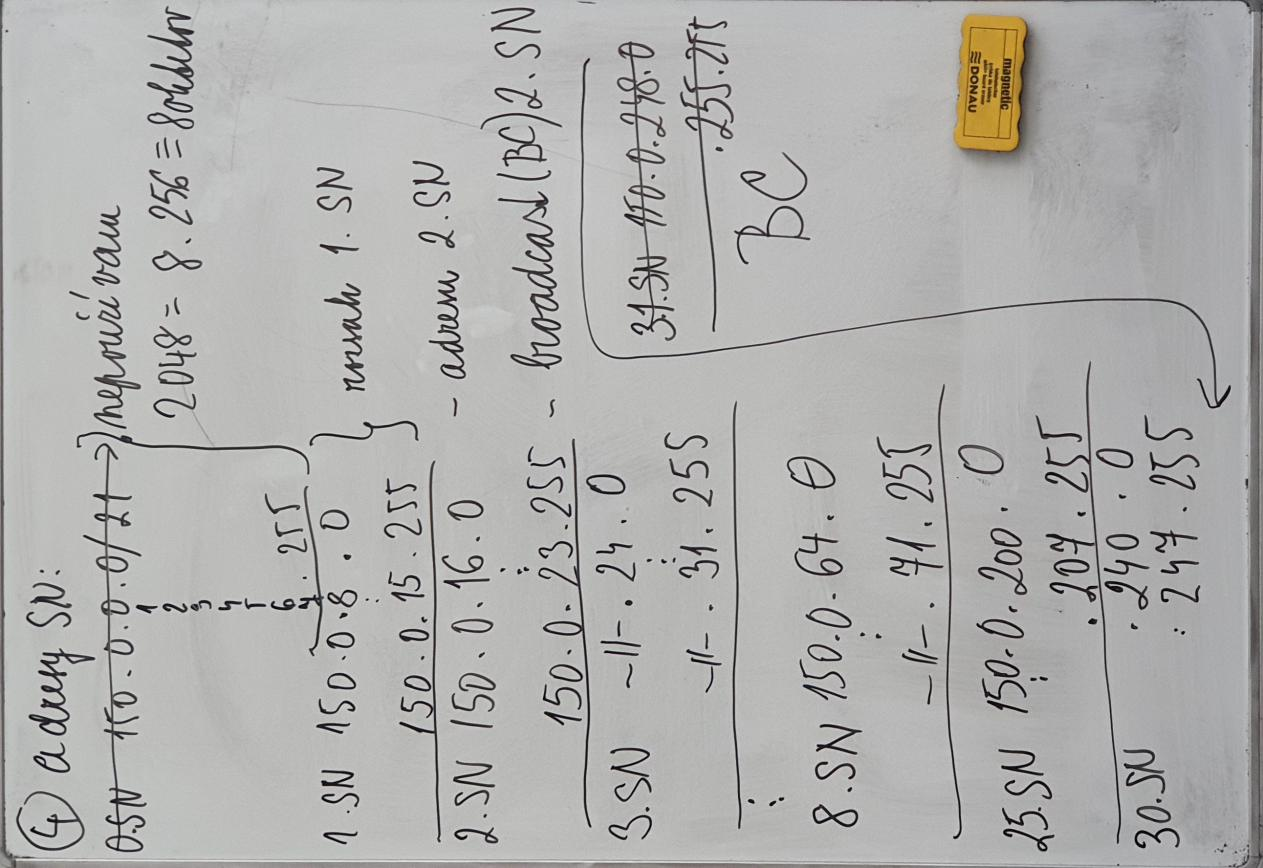 ④ adresy SN:
0.SN 150.0.0.0/21 → nepoužívam
1
2
3
4
5
6
7.255
2048 = 8.256 = 8 oktetov
1.SN 150.0.8.0
⋮
150.0.15.255
rozsah 1.SN
2.SN 150.0.16.0 - adresu 2.SN
⋮
150.0.23.255 - broadcast (BC) 2.SN
3.SN -||-.24.0
⋮
-||-.31.255
⋮
8.SN 150.0.64.0
⋮
-||-.71.255
25.SN 150.0.200.0
⋮
.207.255
30.SN .240.0
: 247.255
31.SN 150.0.248.0
.255.255
BC
magnetic
DONAU